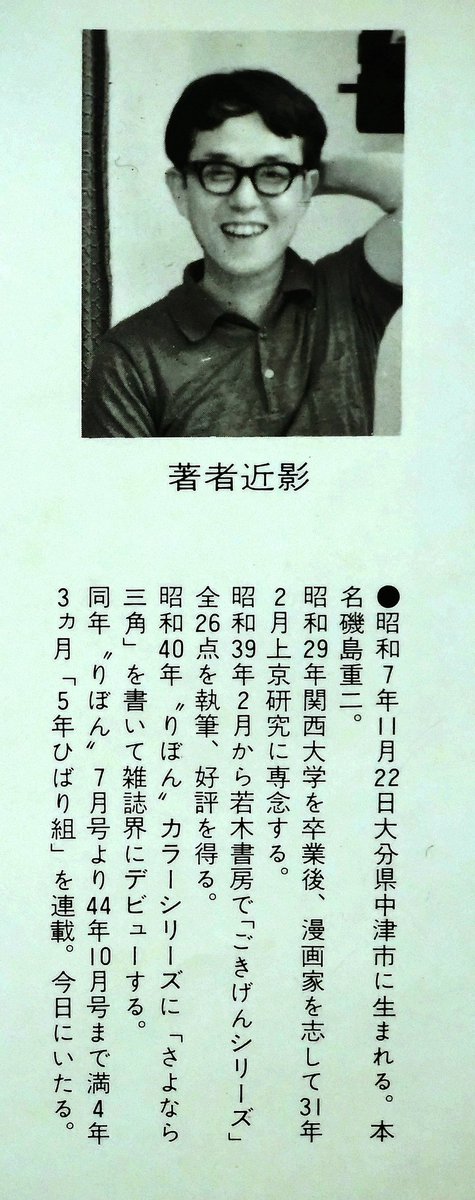 著者近影
●昭和7年11月22日大分県中津市に生まれる。本
名磯島重二。
昭和29年関西大学を卒業後、漫画家を志して31年
2月上京研究に専念する。
昭和39年2月から若木書房で「ごきげんシリーズ」
全26点を執筆、好評を得る。
昭和40年〝りぼん〟カラーシリーズに「さよなら
三角」を書いて雑誌界にデビューする。
同年〝りぼん〟7月号より44年10月号まで満4年
3ヵ月「5年ひばり組」を連載。今日にいたる。